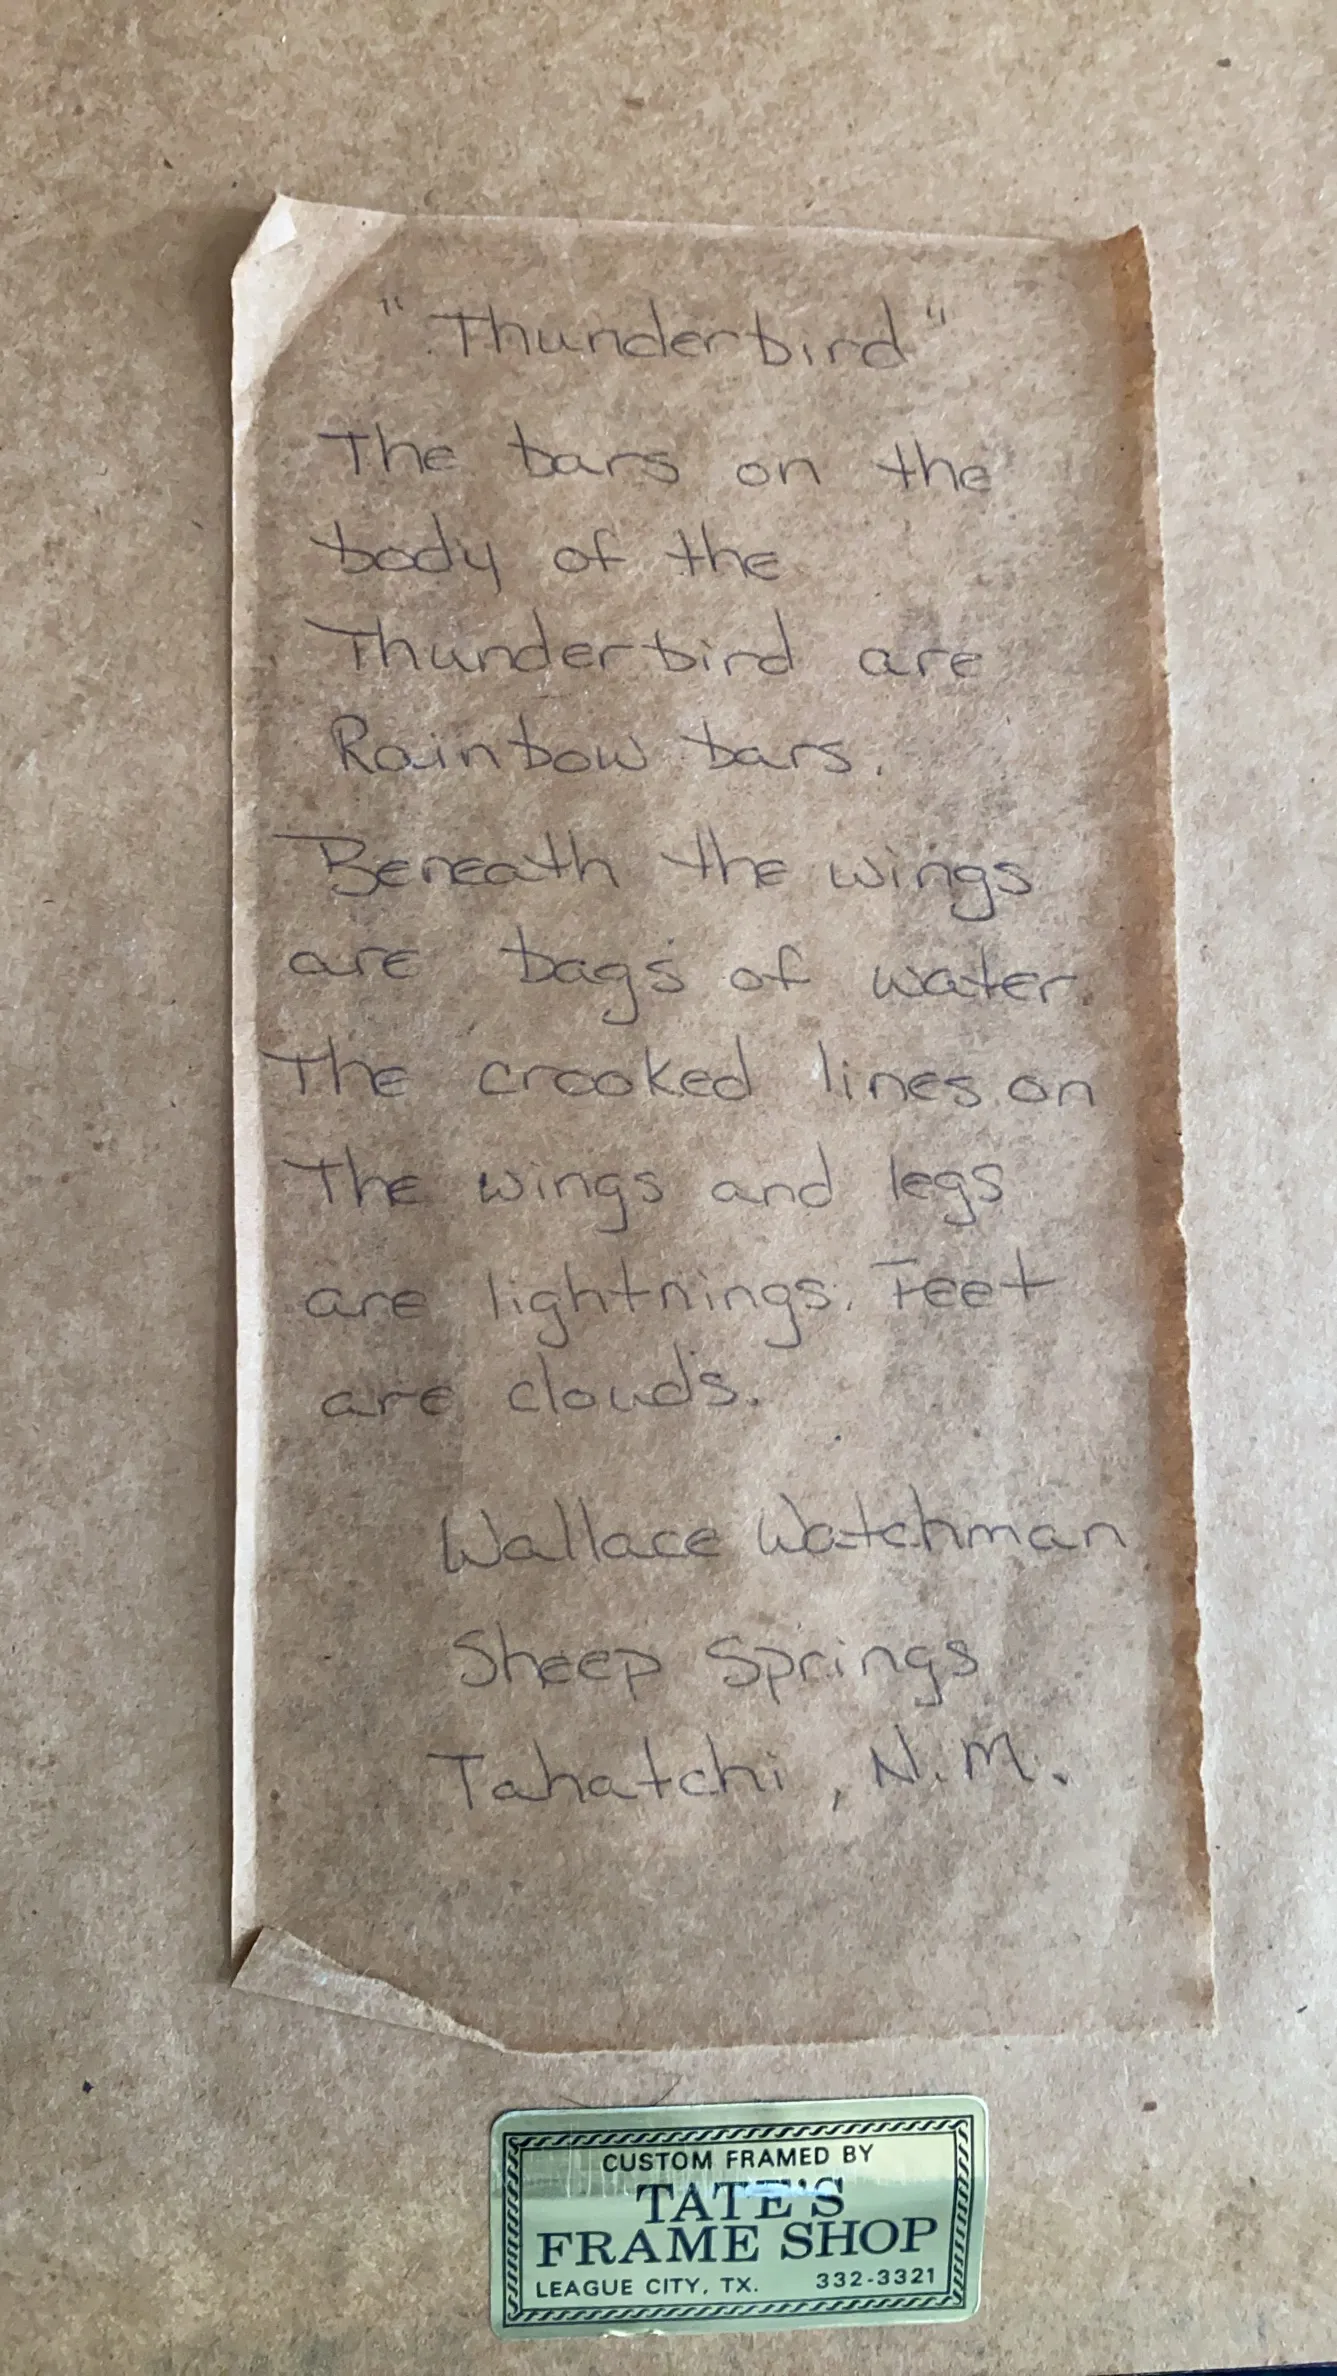 "Thunderbird"
The bars on the
body of the
Thunderbird are
Rainbow bars.
Beneath the wings
are bags of water.
The crooked lines on
The wings and legs
are lightnings. Feet
are clouds.
Wallace Watchman
Sheep Springs
Tahatchi, N.M.
CUSTOM FRAMED BY
TATE'S
FRAME SHOP
LEAGUE CITY, TX. 332-3321